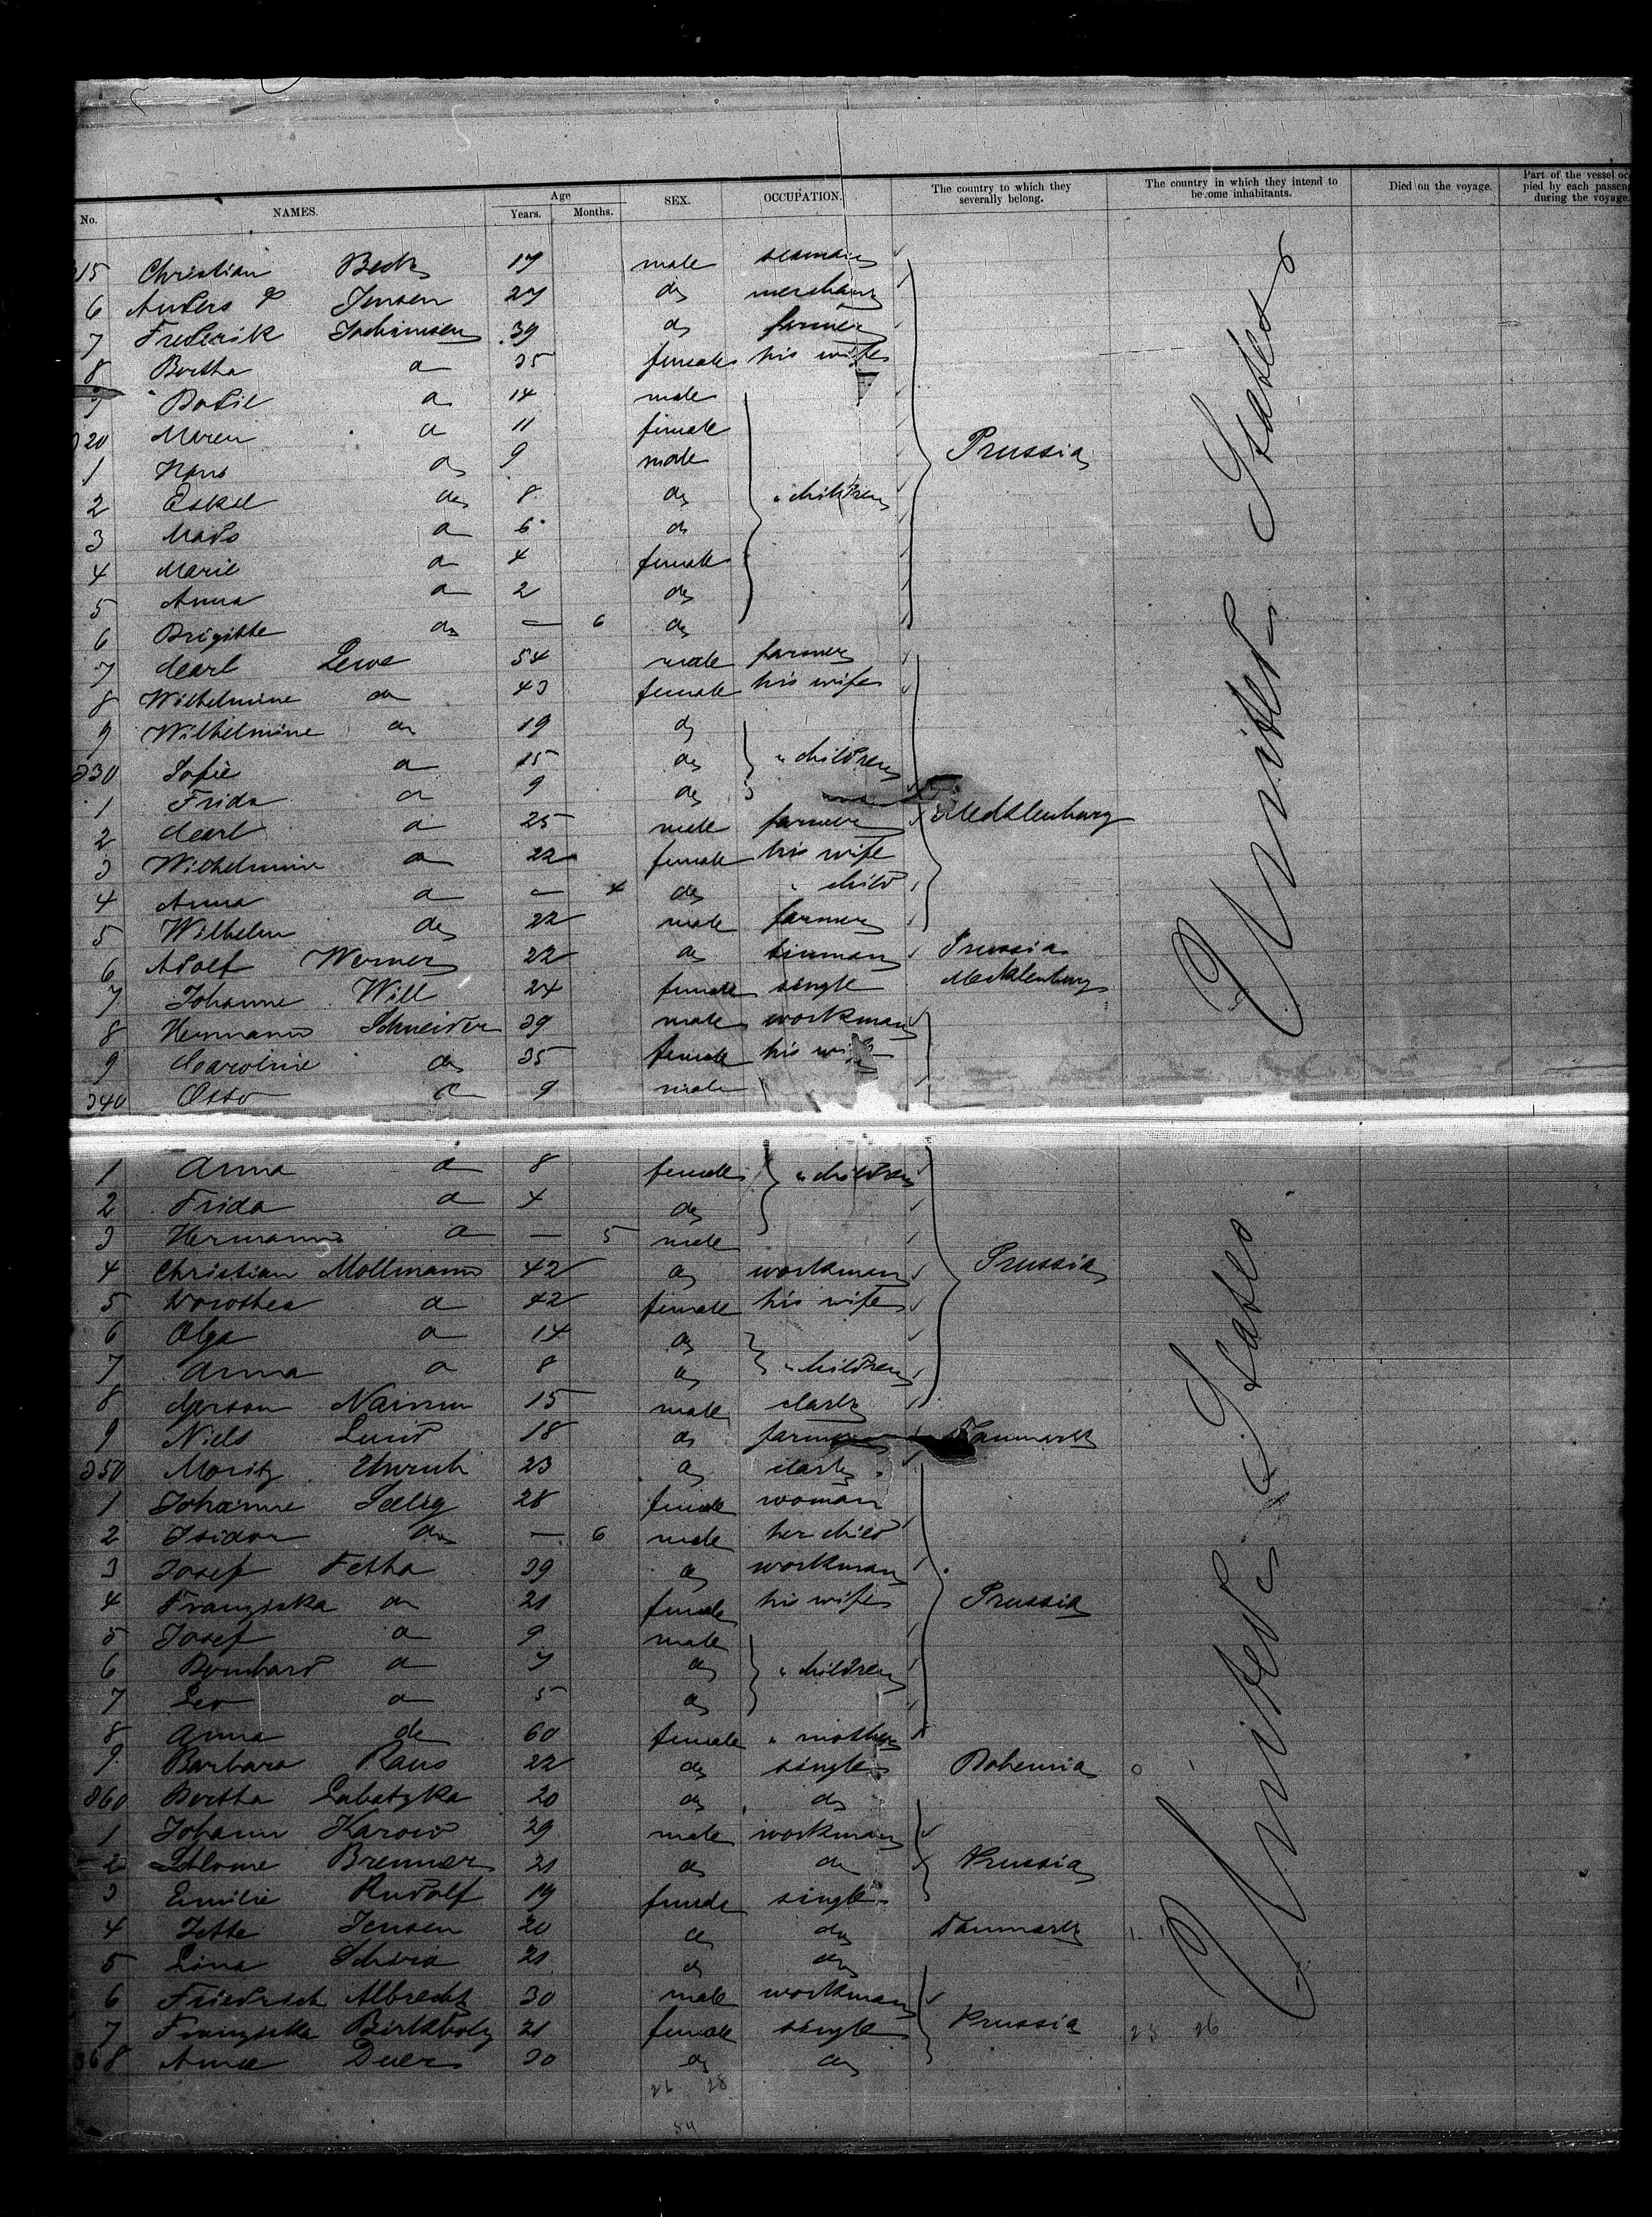 No. NAMES. Age Years. Months. SEX. OCCUPATION. The country to which they severally belong. The country in which they intend to become inhabitants. Died on the voyage. Part of the vessel occupied by each passenger during the voyage.
315 Christian Beck 17 male seaman
6 Anders P Jensen 27 do merchant
7 Frederik Jochimsen 39 do farmer
8 Bertha do 35 female his wife
9 Bodil do 14 male
320 Maren do 11 female
1 Hans do 9 male
2 Eskel do 8 do " children Prussia
3 Mads do 6 do
4 Marie do 4 female
5 Anna do 2 do
6 Brigitte do — 6 do
7 Carl Lewe 54 male farmer
8 Wilhelmine do 43 female his wife
9 Wilhelmine do 19 do
330 Sofie do 15 do " children
1 Frida do 9 do
2 Carl do 25 male farmer Mecklenburg
3 Wilhelmine do 22 female his wife
4 Anna do — 4 do " child
5 Wilhelm do 22 male farmer
6 Adolf Werner 22 do tinman Prussia
7 Johanne Will 24 female single Mecklenburg
8 Hermann Schneider 39 male workman
9 Caroline do 35 female his wife
340 Otto do 9 male
United States
1 Anna do 8 female " children
2 Frida do 4 do
3 Hermann do — 5 male
4 Christian Mollmann 42 do workman Prussia
5 Dorothea do 42 female his wife
6 Olga do 14 do
7 Anna do 8 do " children
8 Gerson 15 male clerk
9 Niels Lund 18 do farmer Danmark
350 Moritz Unruh 23 do clerk
1 Johanne Seelig 28 female woman
2 Isidor do — 6 male her child
3 Josef Fetha 39 do workman
4 Franziska do 21 female his wife Prussia
5 Josef do 9 male
6 Bernhard do 7 do " children
7 Leo do 5 do
8 Anna do 60 female " mother
9 Barbara Raus 22 do single Bohemia
360 Bertha Labatzka 20 do do
1 Johann Karow 29 male workman
2 Schlome Brenner 21 do do Prussia
3 Emilie Rudolf 19 female single
4 Jette Jensen 20 do do Danmark
5 Lina 21 do do
6 Friedrich Albrecht 30 male workman
7 Franziska Birkholz 21 female single Prussia 28 26
368 Anna 30 do do
United States
26 28
54